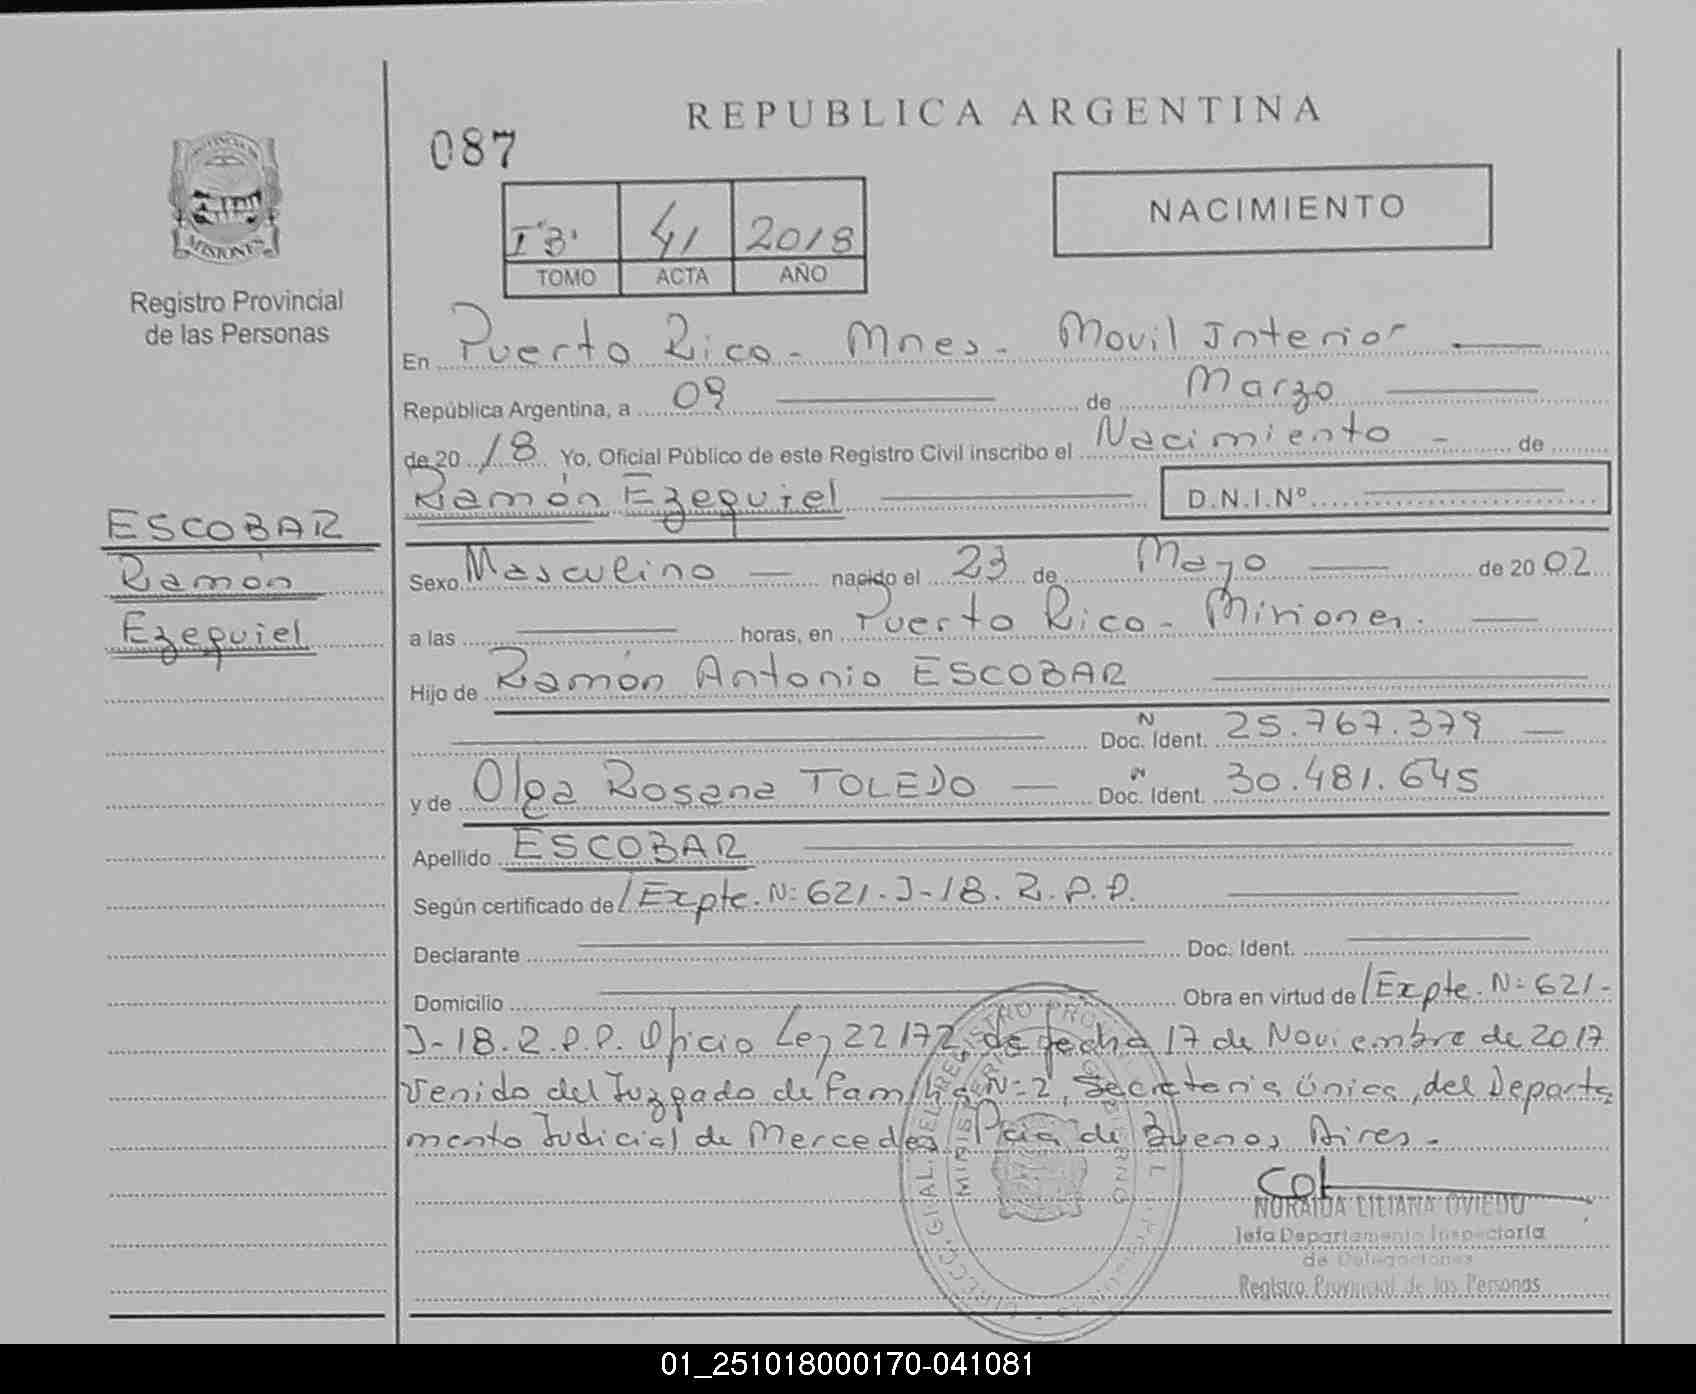 REPUBLICA ARGENTINA
087
NACIMIENTO
I "B" 41 2018
TOMO ACTA AÑO
MISIONES
Registro Provincial
de las Personas
En Puerto Rico - Mnes - Movil Interior
República Argentina, a 09 de Marzo
de 20 18 Yo, Oficial Público de este Registro Civil inscribo el Nacimiento - de
Ramón Ezequiel D.N.I.Nº
ESCOBAR
Ramón
Ezequiel
Sexo Masculino nacido el 23 de Mayo de 20 02
a las horas, en Puerto Rico - Misiones.
Hijo de Ramón Antonio ESCOBAR
Doc. Ident. N 25.767.379
y de Olga Rosana TOLEDO Doc. Ident. N 30.481.645
Apellido ESCOBAR
Según certificado de /Expte. N: 621-J-18. R.P.P.
Declarante Doc. Ident.
Domicilio Obra en virtud de /Expte. N: 621-
J-18. R.P.P. Oficio Ley 22172 de fecha 17 de Noviembre de 2017
venido del Juzgado de Familia N=2, Secretaria Única, del Departa
mento Judicial de Mercedes Pcia de Buenos Aires.-
NORAIDA LILIANA OVIEDO
Jefa Departamento Inspectoria
de Delegaciones
Registro Provincial de las Personas
01_251018000170-041081